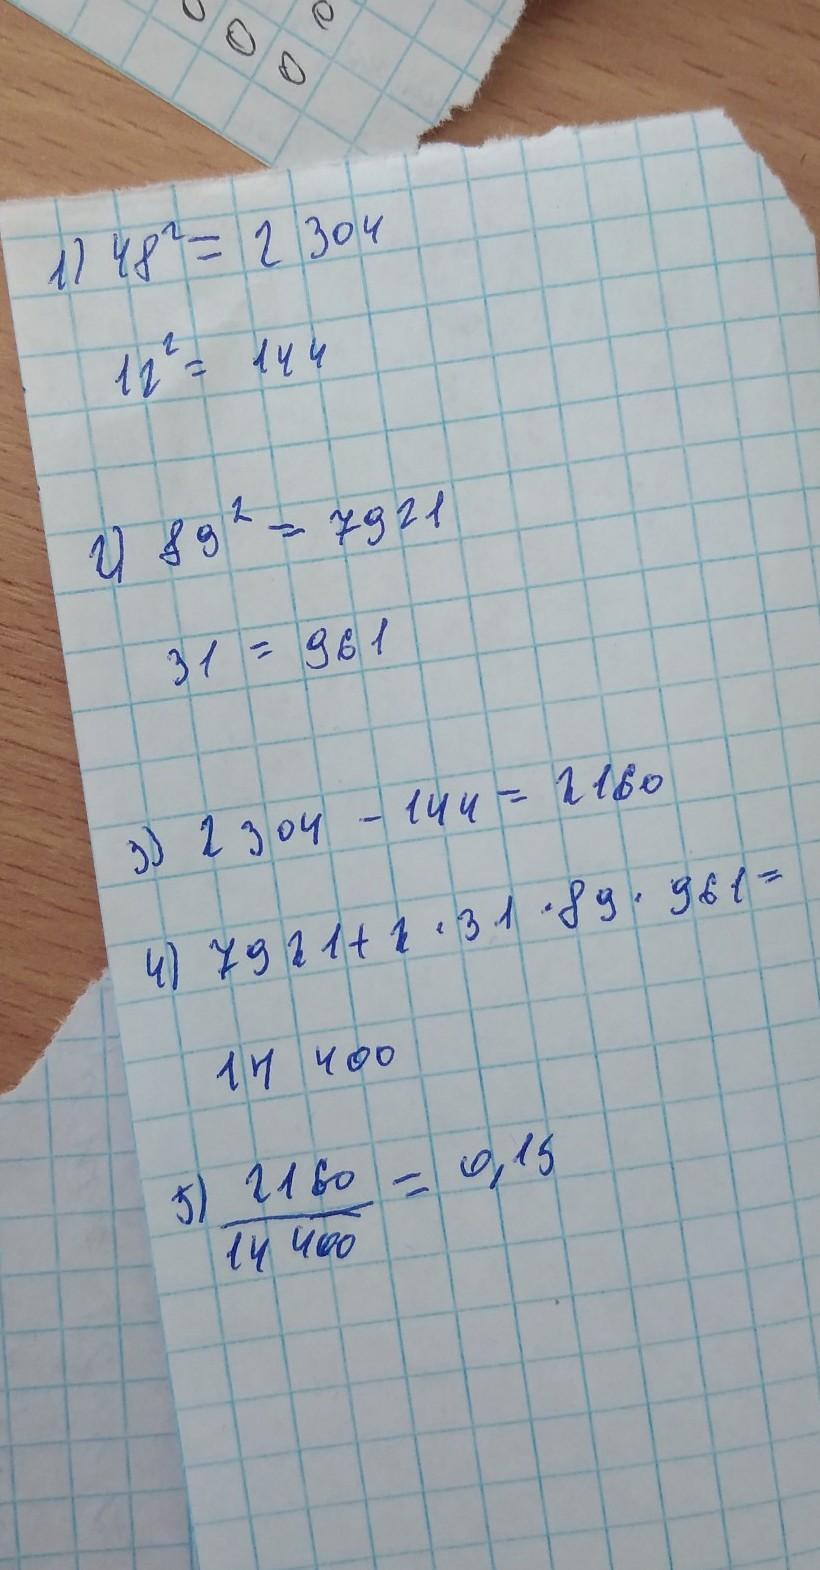 0 0
0
0
1) 48² = 2 304
12² = 144
2) 89² = 7921
31 = 961
3) 2 304 - 144 = 2160
4) 7921 + 2 · 31 · 89 · 961 =
14 400
5) 2160/14 400 = 0,15